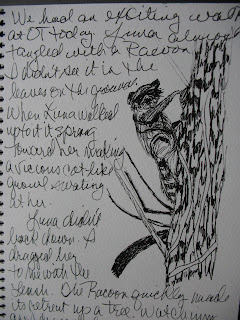 We had an exciting walk
at OT today. Luna almost
tangled with a Racoon.
I didn't see it in the
leaves on the ground.
When Luna walked
up to it it sprang
toward her making
a vicious cat-like
growl swatting
at her.
Luna didn't
back down. I
dragged her
to me with the
leash. The Racoon quickly made
its retreat up a tree, watching